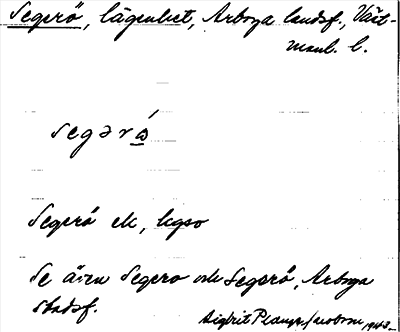 Segerö, lägenhet, Arboga landsf., Väst-
manl. l.
segərö́
Segerö ek, kgso
Se även Segerö och Segerö, Arboga
stadsf.
Sigbrit Plænge Jacobson 1943